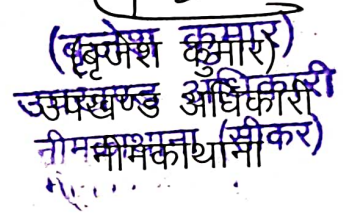 (बृजेश कुमार)
उपखण्ड अधिकारी
नीमकाथाना (सीकर)
(बृजेश कुमार)
उपखण्ड अधिकारी
नीमकाथाना